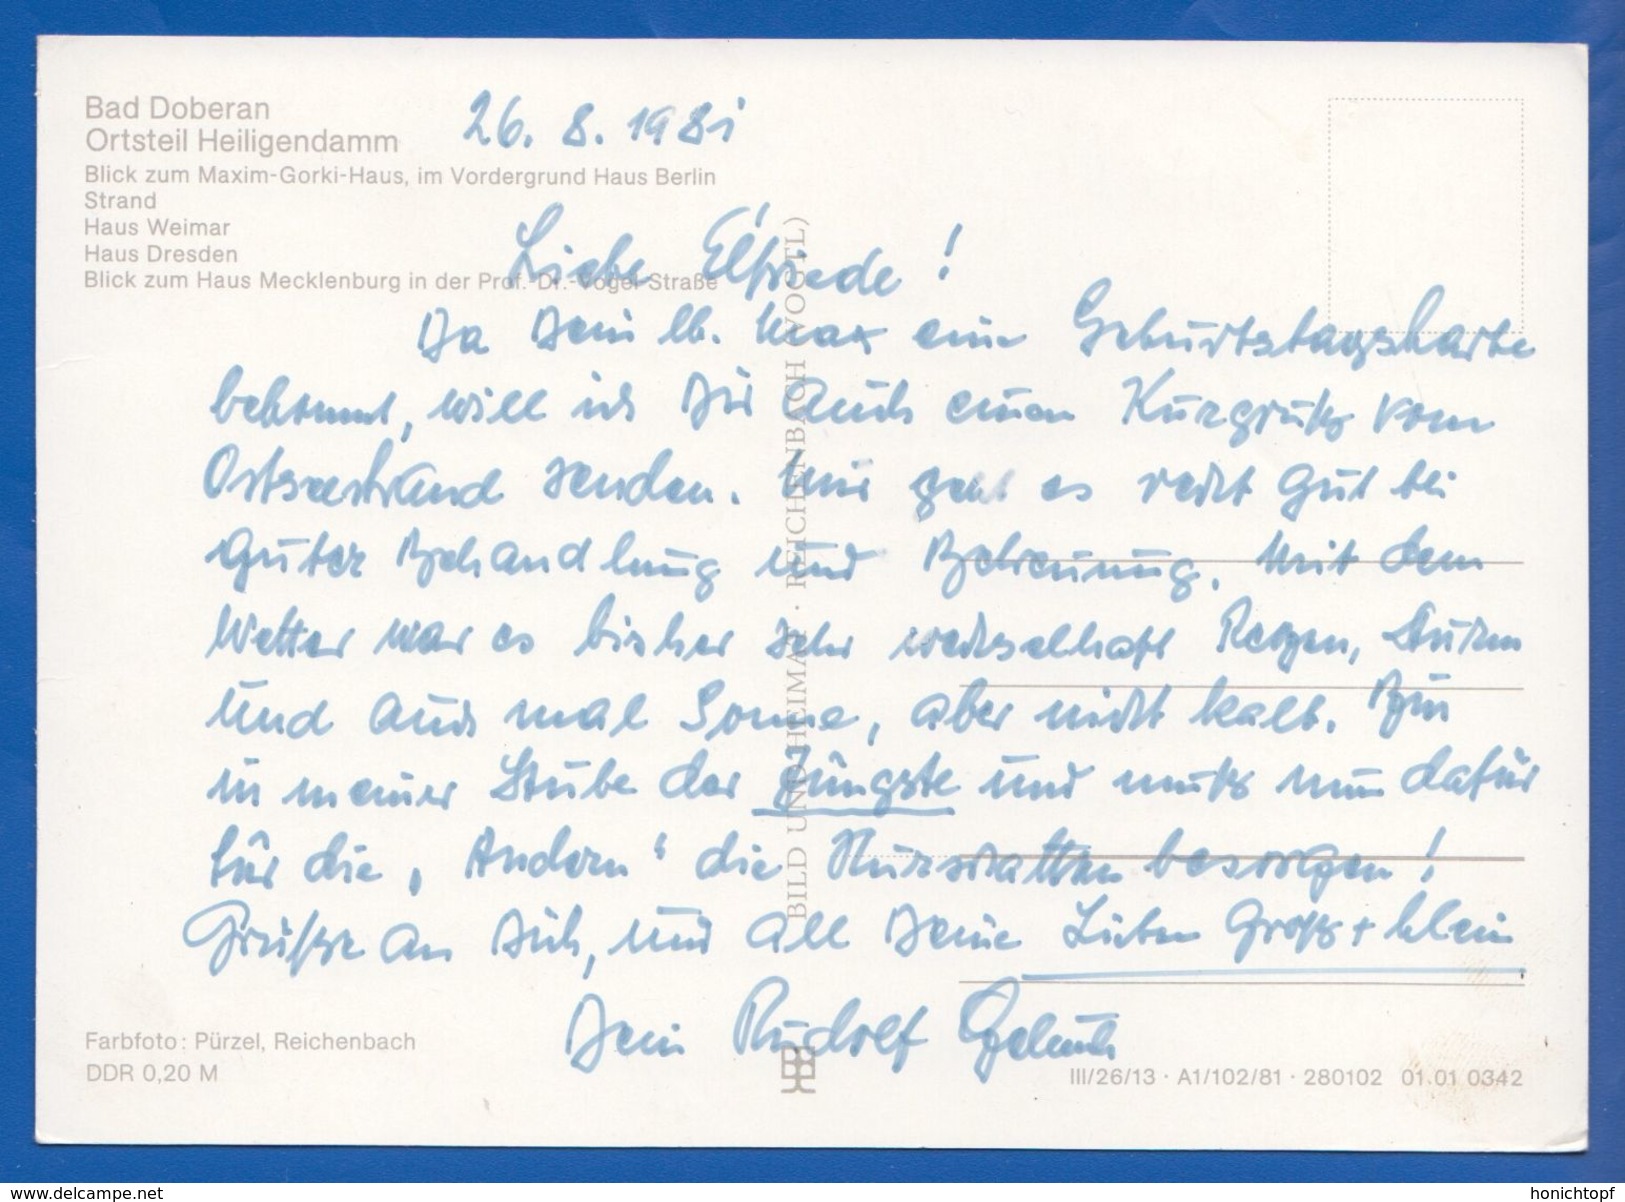 Bad Doberan
Ortsteil Heiligendamm
Blick zum Maxim-Gorki-Haus, im Vordergrund Haus Berlin
Strand
Haus Weimar
Haus Dresden
Blick zum Haus Mecklenburg in der Prof.-Dr.-Vogel-Straße
26. 8. 1981
Liebe Elfriede!
Da Dein lb. Max eine Geburtstagskarte
bekommt, will ich Dir auch einen Kurgruß vom
Ostseestrand senden. Mir geht es recht gut bei
guter Behandlung und Betreuung. Mit dem
Wetter war es bisher sehr wechselhaft Regen, Sturm
und auch mal Sonne, aber nicht kalt. Bin
in meiner Stube der Jüngste und muß nun dafür
für die „Andern“ die besorgen!
Grüße an Dich, und all Deine Lieben Groß + klein
Dein Rudolf
BILD UND HEIMAT · REICHENBACH (VOGTL)
Farbfoto: Pürzel, Reichenbach
DDR 0,20 M
III/26/13 · A1/102/81 · 280102 01 01 0342
delcampe.net
honichtopf